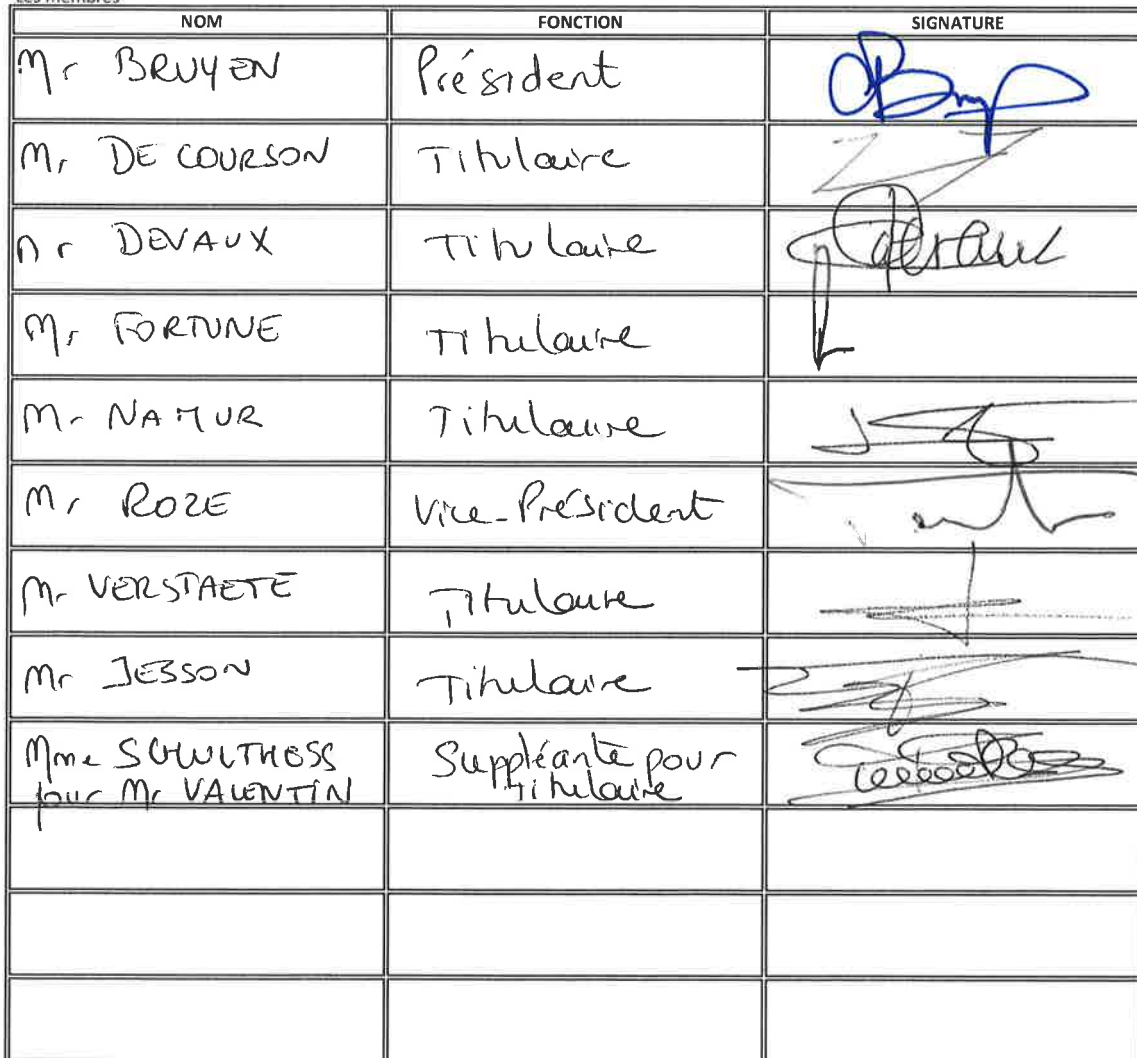 Les membres
NOM FONCTION SIGNATURE
Mr BRUYEN Président
Mr DE COURSON Titulaire
Mr DEVAUX Titulaire
Mr FORTUNE Titulaire
Mr NAMUR Titulaire
Mr ROZE Vice-Président
Mr VERSTAETE Titulaire
Mr JESSON Titulaire
Mme SCHULTHESS Suppléante pour
pour Mr VALENTIN titulaire